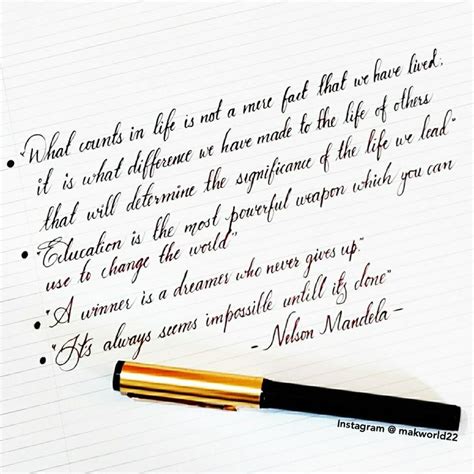 • "What counts in life is not a mere fact that we have lived;
it is what difference we have made to the life of others
that will determine the significance of the life we lead"
• "Education is the most powerful weapon which you can
use to change the world"
• "A winner is a dreamer who never gives up."
• "It's always seems impossible untill its done"
- Nelson Mandela -
Instagram @ makworld22